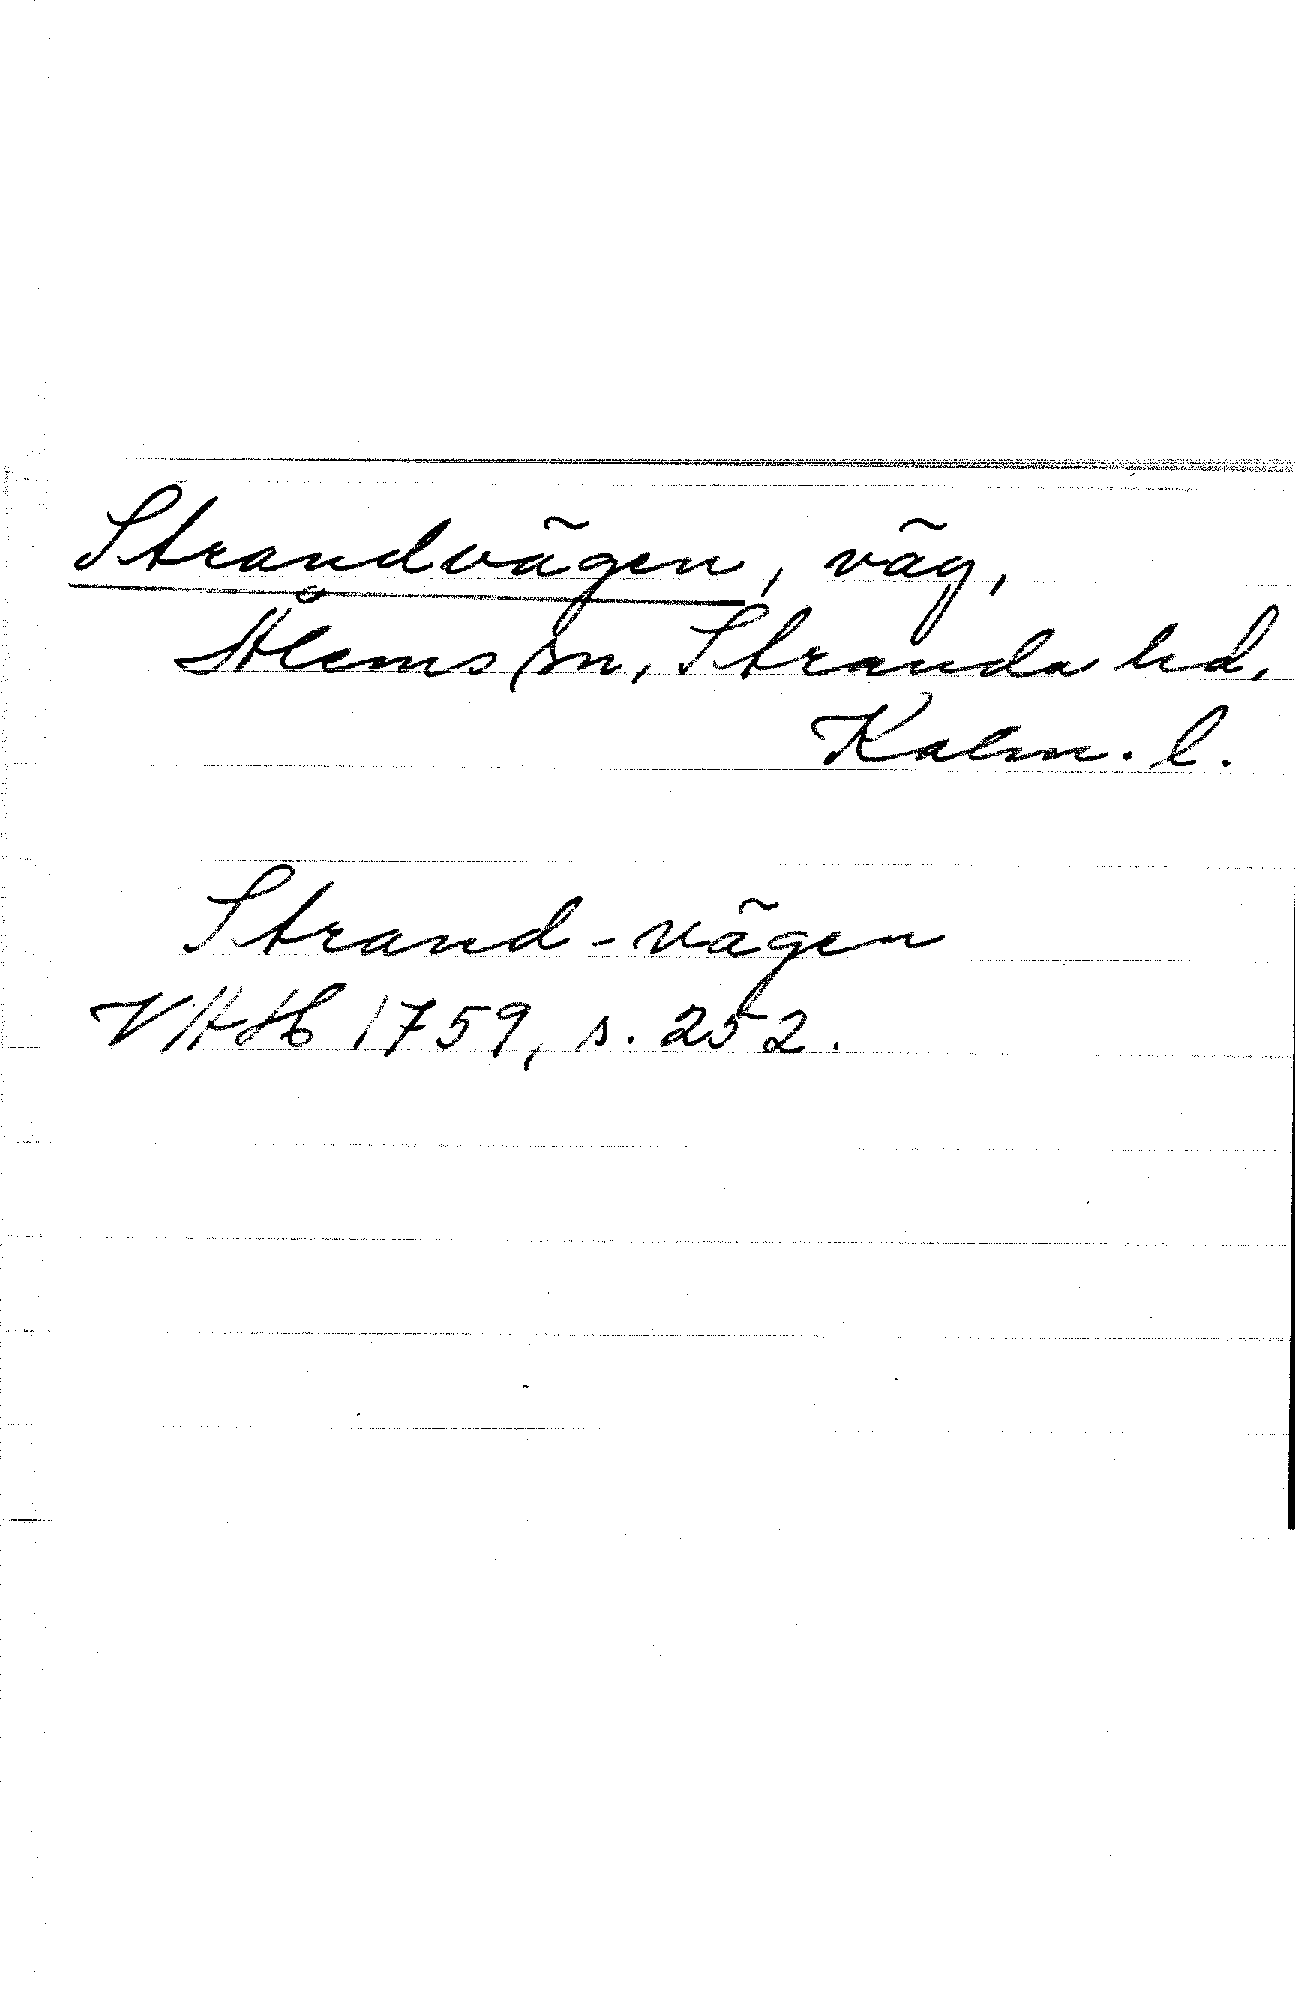 Strandvägen, väg,
Ålems sn, Stranda hd,
Kalm. l.
Strand-vägen
VHH 1759, s. 252.